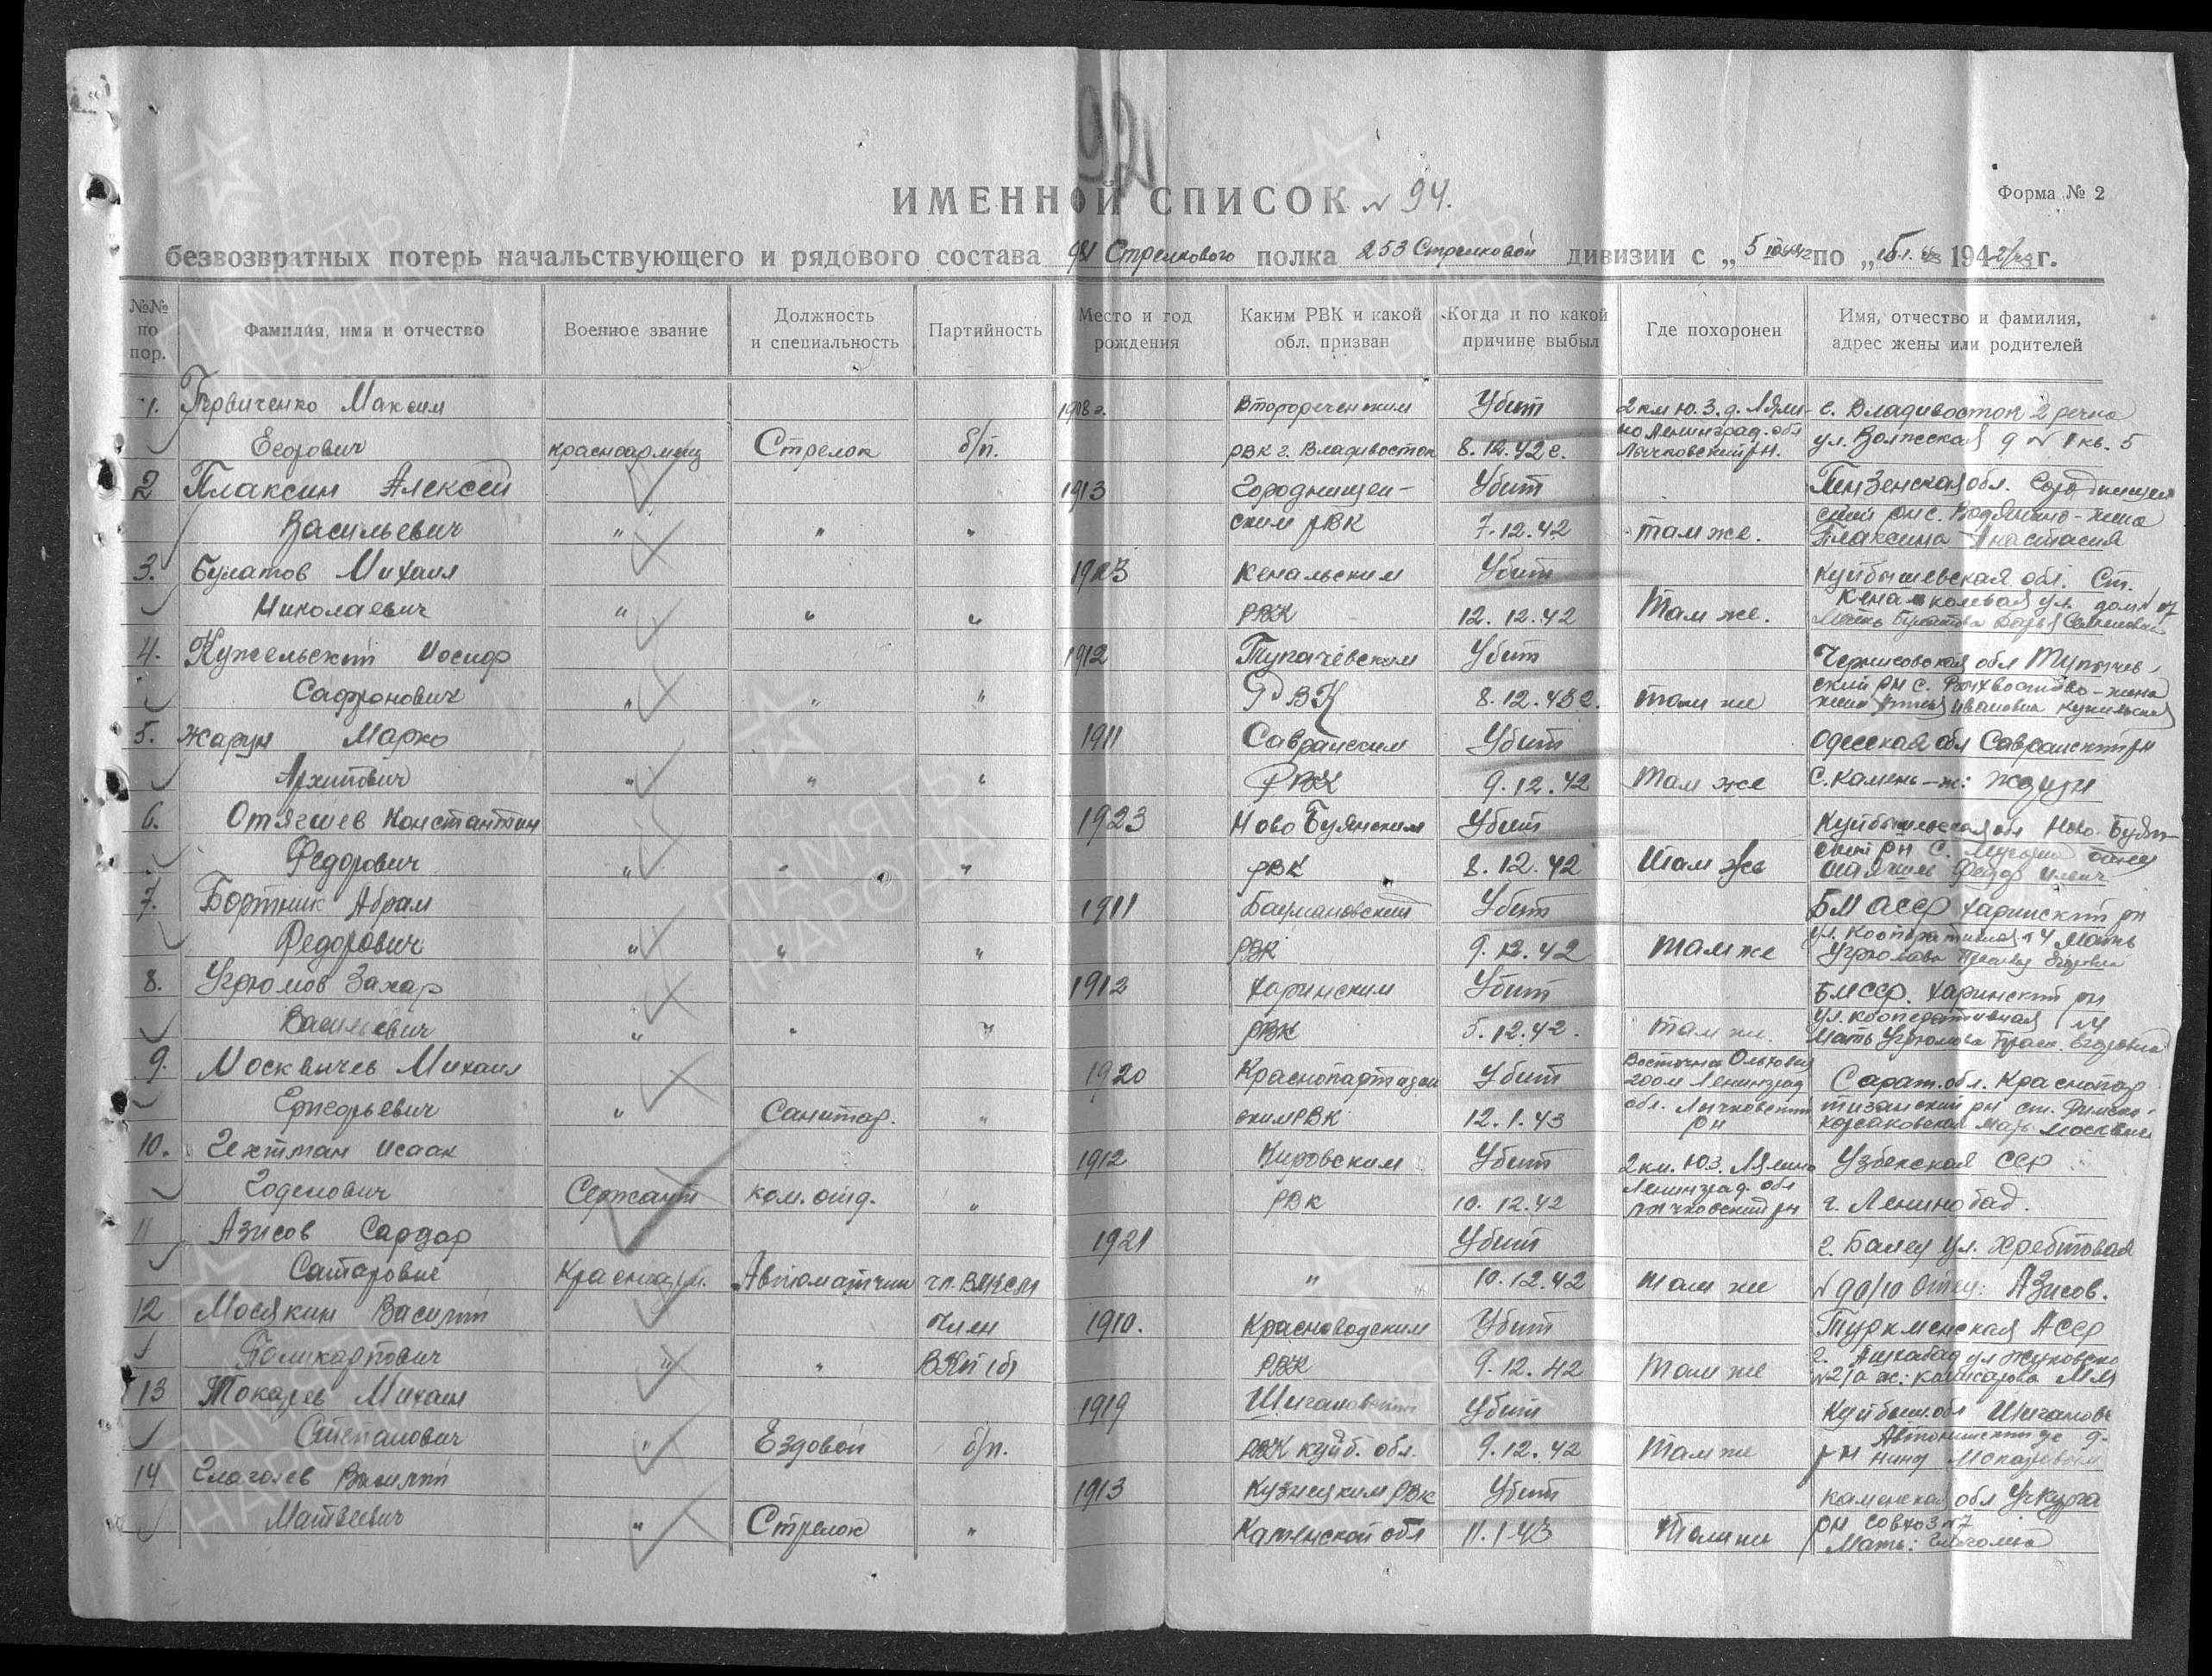 ИМЕННОЙ СПИСОК № 94.
Форма № 2
безвозвратных потерь начальствующего и рядового состава 981 Стрелкового полка 253 Стрелковой дивизии с „5 по „15.1. 194 г.
№№ по пор.
Фамилия, имя и отчество
Военное звание
Должность и специальность
Партийность
Место и год рождения
Каким РВК и какой обл. призван
Когда и по какой причине выбыл
Где похоронен
Имя, отчество и фамилия, адрес жены или родителей
1. Первиченко Максим 1908 г. Второреченским Убит 2 км Ю.З. д. Лялино г. Владивосток 2 речка
Егорович красноармеец Стрелок б/п. РВК г. Владивосток 8.12.42г. Ленинград. обл Лычковский рн. ул. Волжская д № 1 кв. 5
2 Плаксин Алексей 1913 Городищен- Убит Пензенская обл. Городищен
Васильевич " " " ским РВК 7.12.42 там же. ский рн с. Водянино - жена Плаксина Анастасия
3. Булатов Михаил 1923 Кенельским Убит Куйбышевская обл. Ст.
Николаевич " " " РВК 12.12.42 Там же. ул. дом Мать Булатова Дарья
4. Кужельский Иосиф 1912 Тупачевским Убит Черниговская обл Тупичев
Сафронович " " " РВК 8.12.42г. там же ский рн с. - жена Ивановна Кужельская
5. Жарун Марко 1911 Савранским Убит Одесская обл Савранский рн
Архипович " " " РВК 9.12.42 Там же С. Камень - ж: Жарун
6. Отягшев Константин 1923 Ново Буянским Убит Куйбышевская обл Ново-Буян
Федорович " " " РВК 8.12.42 Там же ский рн С. отец Федор
7. Бортник Абрам 1911 Баумановский Убит БМ АССР Харинский рн
Федорович " " " РВК 9.12.42 там же ул. Кооперативная 4 Мать Угрюмова
8. Угрюмов Захар 1912 Харинским Убит БМССР. Харинский рн
Васильевич " " " РВК 5.12.42. там же. ул. кооперативная №4 Мать Угрюмова Праск. Егоровна
9. Москвичев Михаил 1920 Краснопартизан Убит Восточнее Ольховец 200 м Ленинград Сарат. обл. Краснопар
Григорьевич " Санитар. " ским РВК 12.1.43 обл. Лычковский рн тизанский рн ст. Римско-Корсаковская мать Москвиче
10. Гехтман Исаак 1912 Кировским Убит 2 км. Ю.З. Лялино Узбекская ССР
Годелович Сержант ком. отд. " РВК 10.12.42 Ленинград. обл Лычковский рн г. Ленинобад.
11 Азисов Сардар 1921 Убит г. Балей ул. Хребтовая
Саторович Красноарм. Автоматчик чл. ВЛКСМ " 10.12.42 там же № 90/10 Отец: Азисов.
12 Мосякин Василий Член 1910. Красноводским Убит Туркменская АССР
Поликарпович " " ВКП(б) РВК 9.12.42 Там же г. Ашхабад ул Жуковско №21а ж: Комисарова М.М
13 Токарев Михаил 1919 Шигановский Убит Куйбыш.обл Шигановс
Степанович " Ездовой б/п. РВК куйб. обл. 9.12.42 Там же рн
14 Глаголев Василий 1913 Кузнецким РВК Убит каменская обл
Матвеевич " Стрелок " Каменской обл 11.1.43 Там же рн совхоз №7 Мать: Глаголева
ПАМЯТЬ НАРОДА